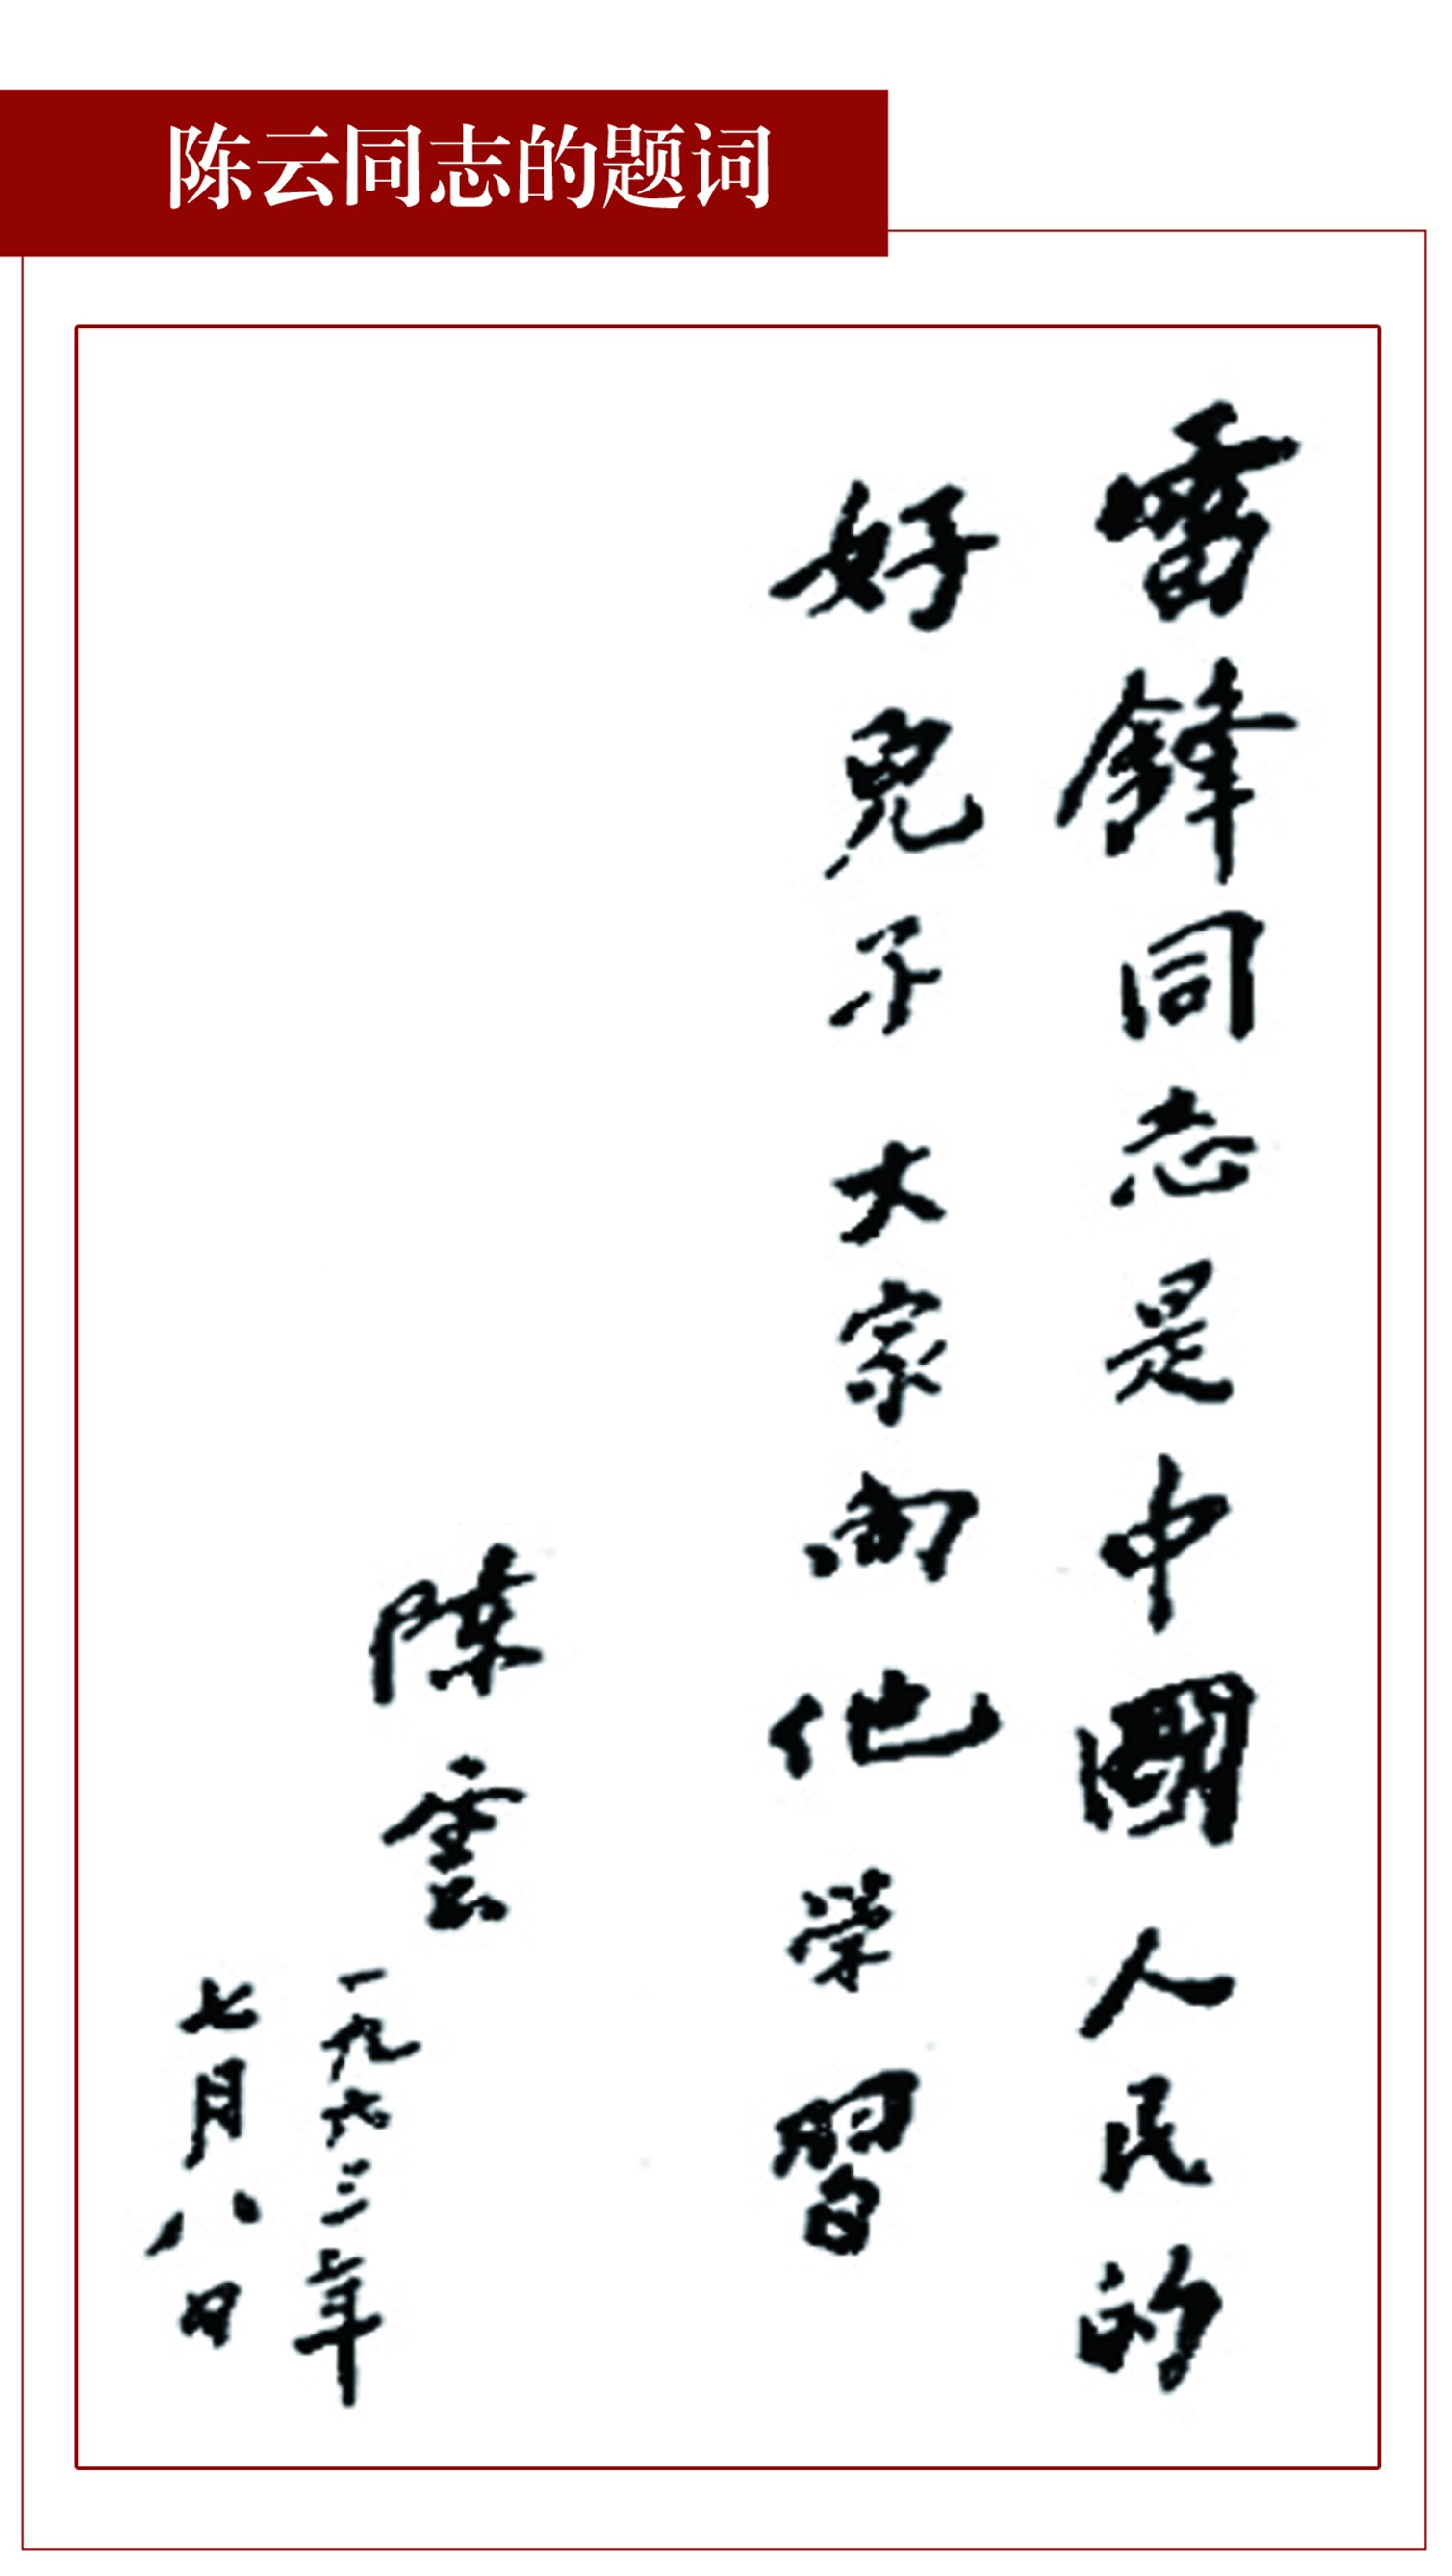 陈云同志的题词
雷鋒同志是中國人民的
好兒子 大家向他学習
陳雲
一九六三年
七月八日